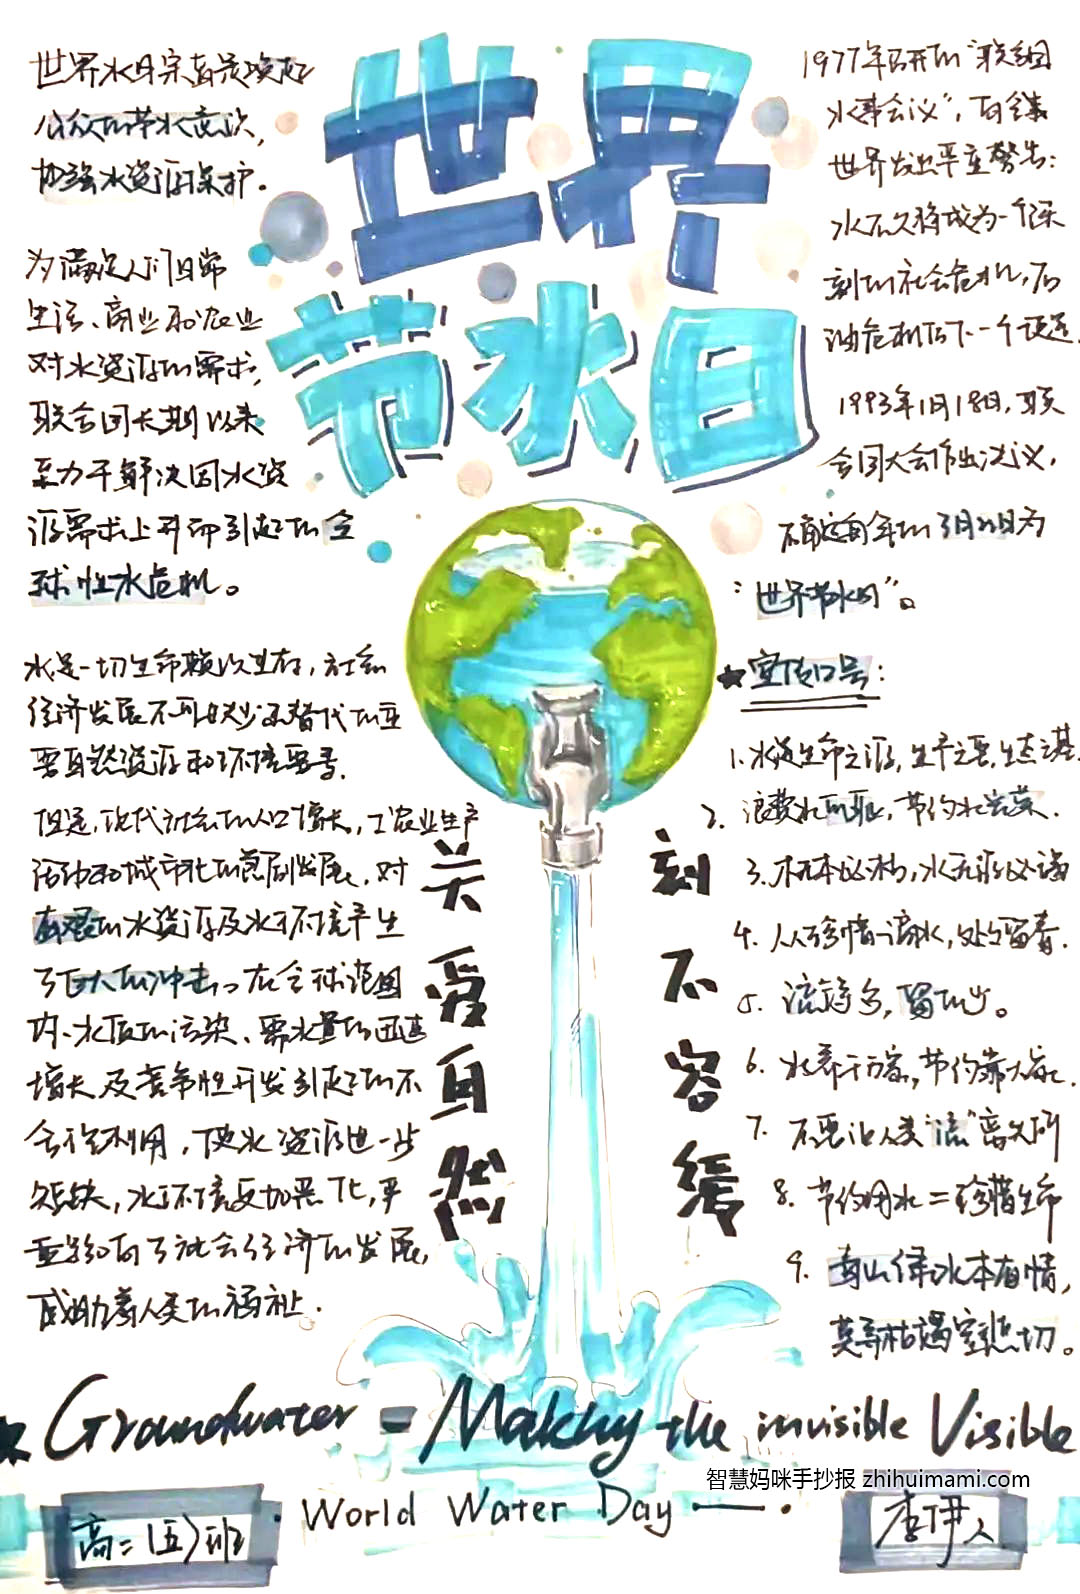 世界
节水日
世界水日宗旨是唤起
公众的节水意识,
加强水资源保护。
为满足人们日常
生活、商业和农业
对水资源的需求,
联合国长期以来
致力于解决因水资
源需求上升而引起的全
球性水危机。
水是一切生命赖以生存,社会
经济发展不可缺少不可替代的重
要自然资源和环境要素.
但是,现代社会的人口增长,工农业生产
活动和城市化的急剧发展,对
有限的水资源及水环境产生
了巨大的冲击。在全球范围
内、水质的污染、需水量的迅速
增长及竞争性开发引起的不
合理利用,使水资源进一步
短缺,水环境更加恶化,严
重影响了社会经济的发展,
威胁着人类的福祉.
1977年召开的"联合国
水事会议",向全
世界发出严重警告:
水不久将成为一个深
刻的社会危机,石
油危机后下一个便是
1993年1月18日,联
合国大会作出决议,
确定每年的3月22日为
"世界节水日"。
宣传口号:
1.水是生命之源,生产之要,生态之基.
2.浪费水可耻,节约水光荣.
3.木无本必枯,水无源必竭
4.人人珍惜一滴水,处处留春.
5.流走多,留的少。
6.水养千万家,节约靠大家.
7.不要让人类"流"离失所
8.节约用水=珍惜生命
9.青山绿水本有情,
莫等枯竭空悲切。
关爱自然
刻不容缓
Groundwater - Making the invisible Visible
World Water Day
智慧妈咪手抄报 zhihuimami.com
高二(五)班
李伊人